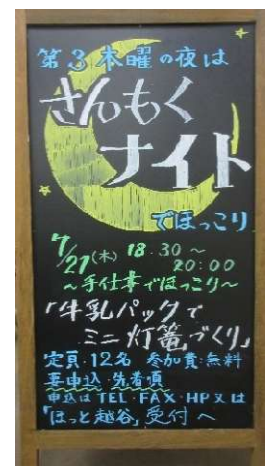 第3木曜の夜は
さんもく
ナイト
でほっこり
7/21(木) 18:30～
20:00
～手仕事でほっこり～
「牛乳パックで
ミニ灯篭づくり」
定員・12名 参加費・無料
要申込・先着順
申込はTEL・FAX・HP又は
「ほっと越谷」受付へ